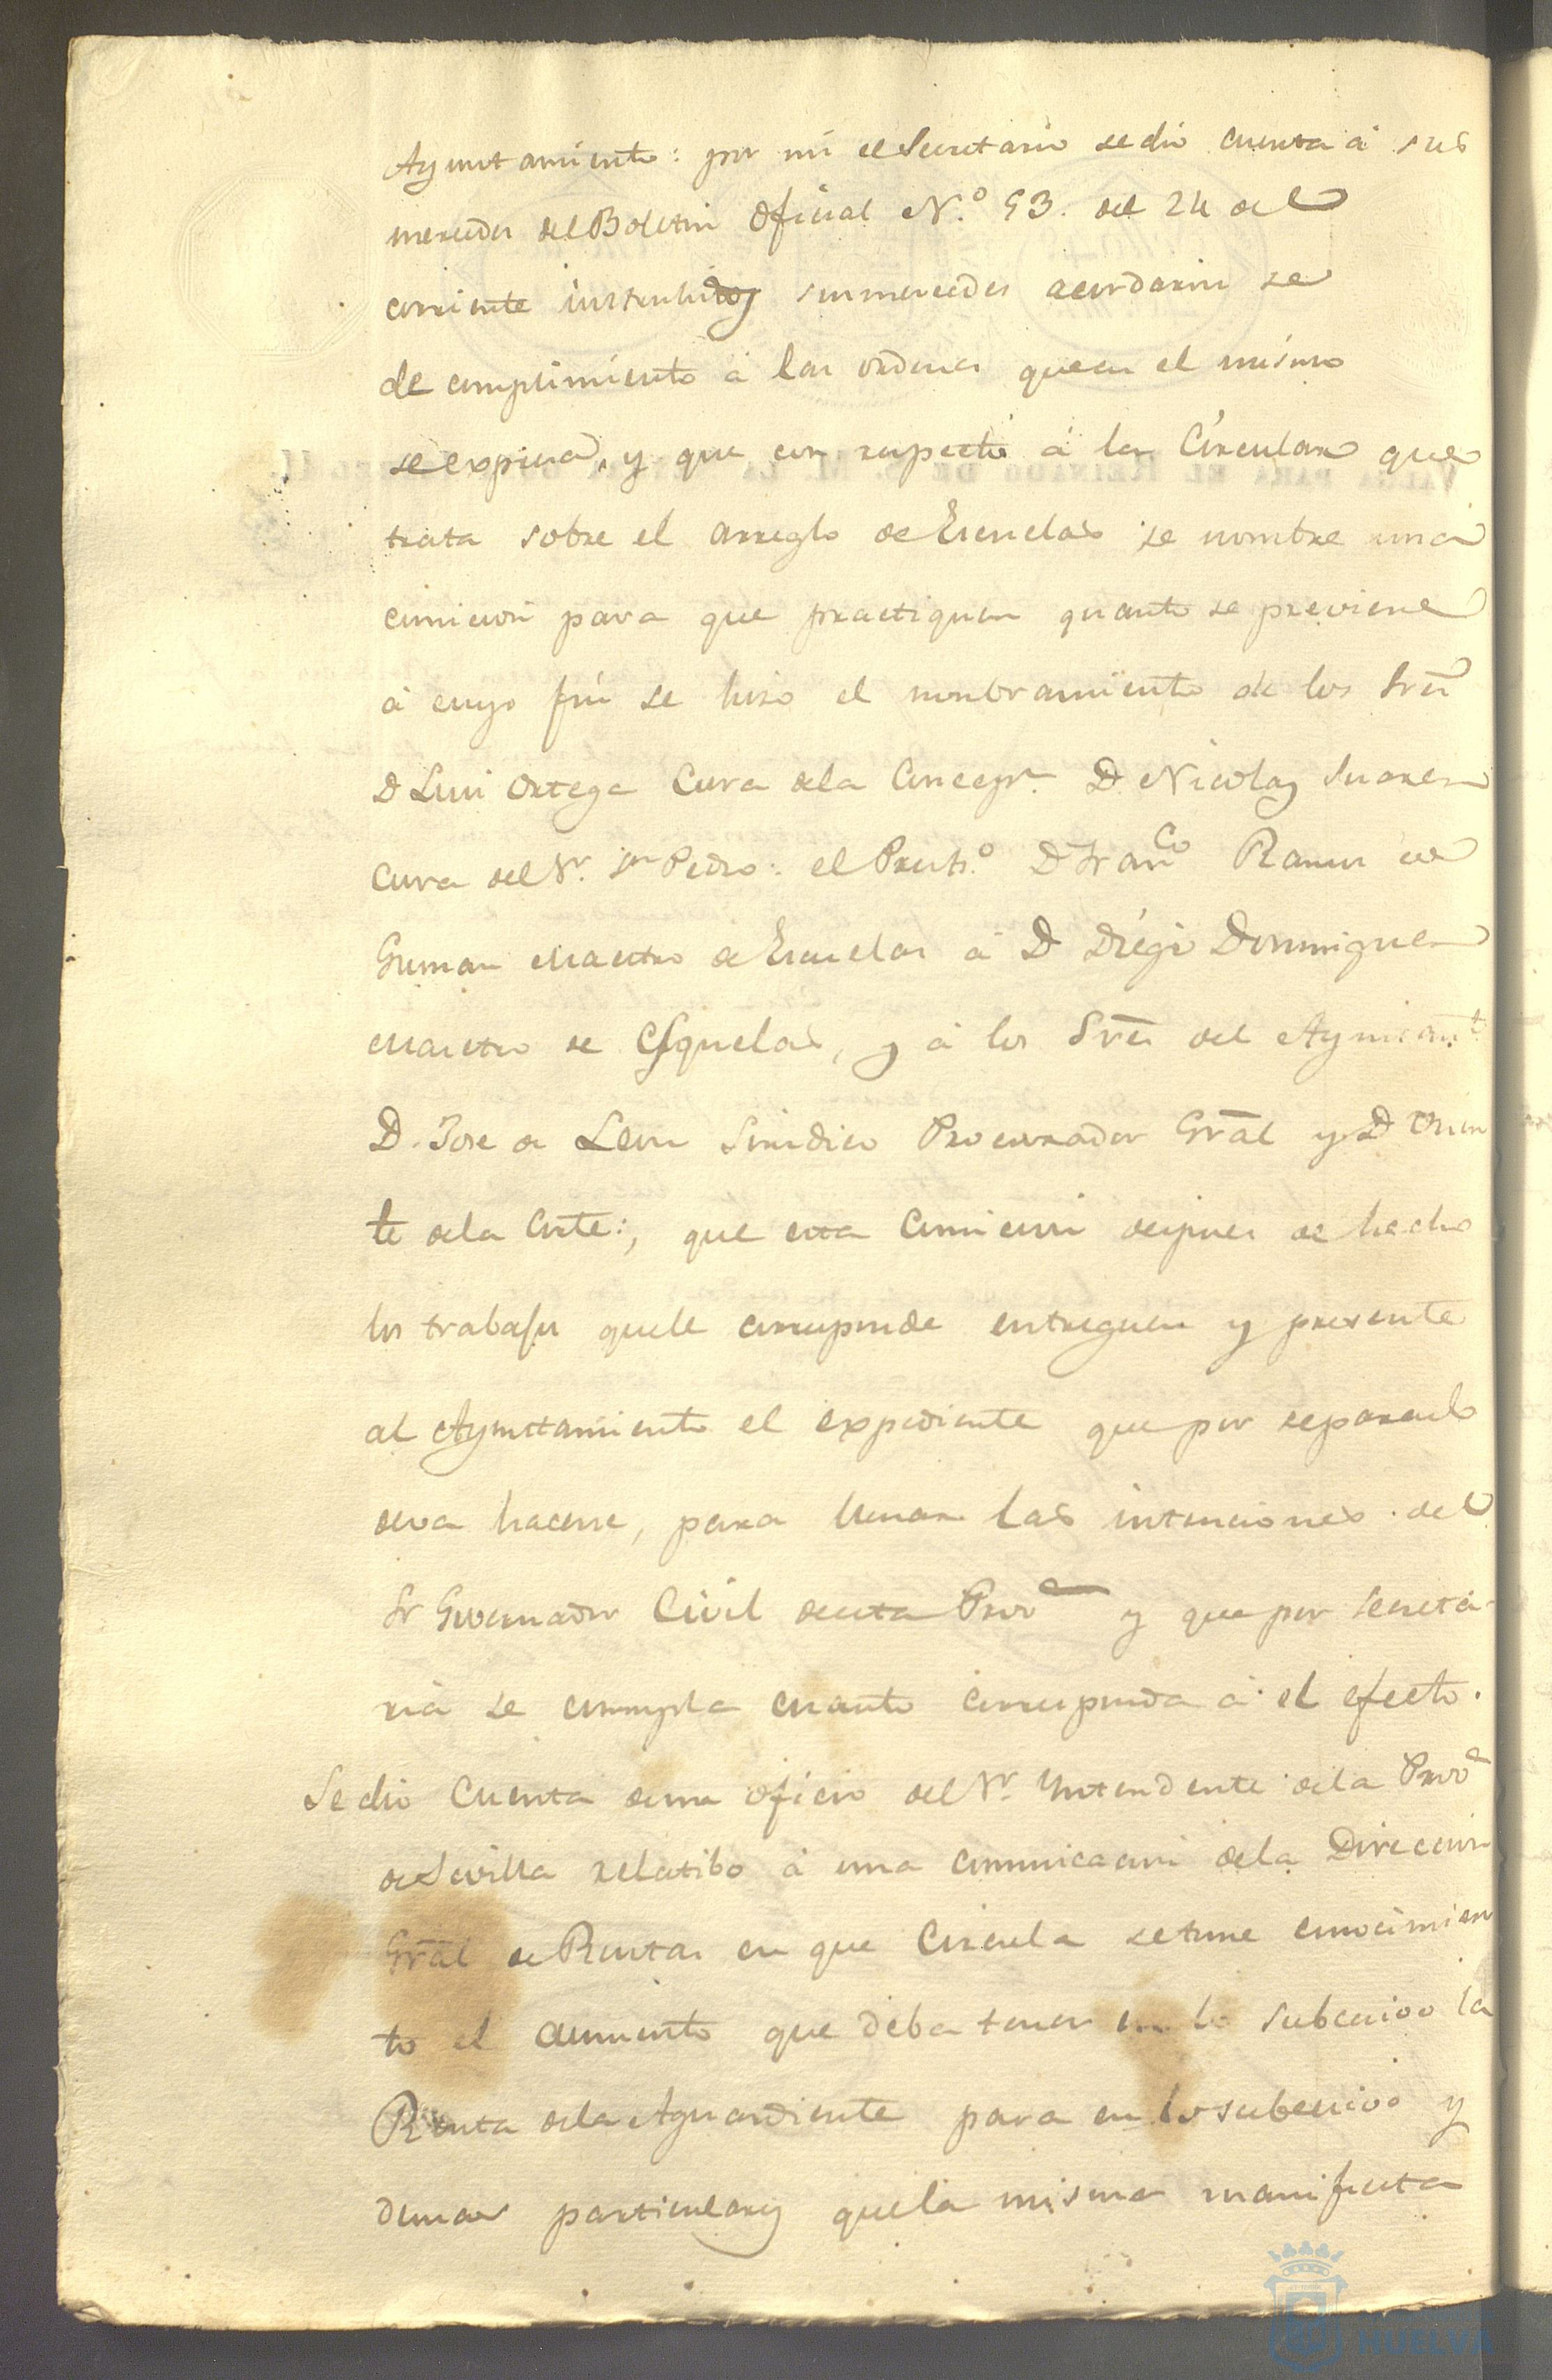 Ayuntamiento: por mi el Secretario se dio cuenta á sus
mercedes del Boletin Oficial N.º 53. del 24 del
corriente instruhidos sus mercedes acordaron se
de cumplimiento á las ordenes que en el mismo
se expresa, y que con respecto á la Circular que
trata sobre el arreglo de Escuelas se nombre una
comicion para que practiquen quanto se previene
á cuyo fin se hiso el nombramiento de los Sres
D Luis Ortega Cura dela Concepn. D. Nicolas Suares
Cura del Sr. Sn Pedro: el Presb.º D Franco Ramos de
Gusman Maestro de Escuelas á D Diego Domingues
Maestro de Esquelas, y á los Sres del Ayuntamto
D. Jose de Leon Sindico Procurador Gral y D Vicen
te dela Corte:, que esta Comicion despues de hecho
los trabajos que le corresponde entreguen y presente
al Ayuntamiento el expediente que por separado
deva hacerse, para llenar las intenciones del
Sr Governador Civil de esta Prova y que por secreta
ria se cumpla cuanto corresponda á el efecto.
Se dio cuenta de un oficio del Sr. Yntendente dela Prova
de Sevilla relatibo á una comunicacion dela Direccion
Gral de Rentas en que circula se tome conocimien
to el aumento que deba tener en lo subcecivo la
Renta dela Aguardiente para en lo subcecivo y
demas particulares que la misma manifiesta
VALGA PARA EL REINADO DE S. M. LA
HUELVA